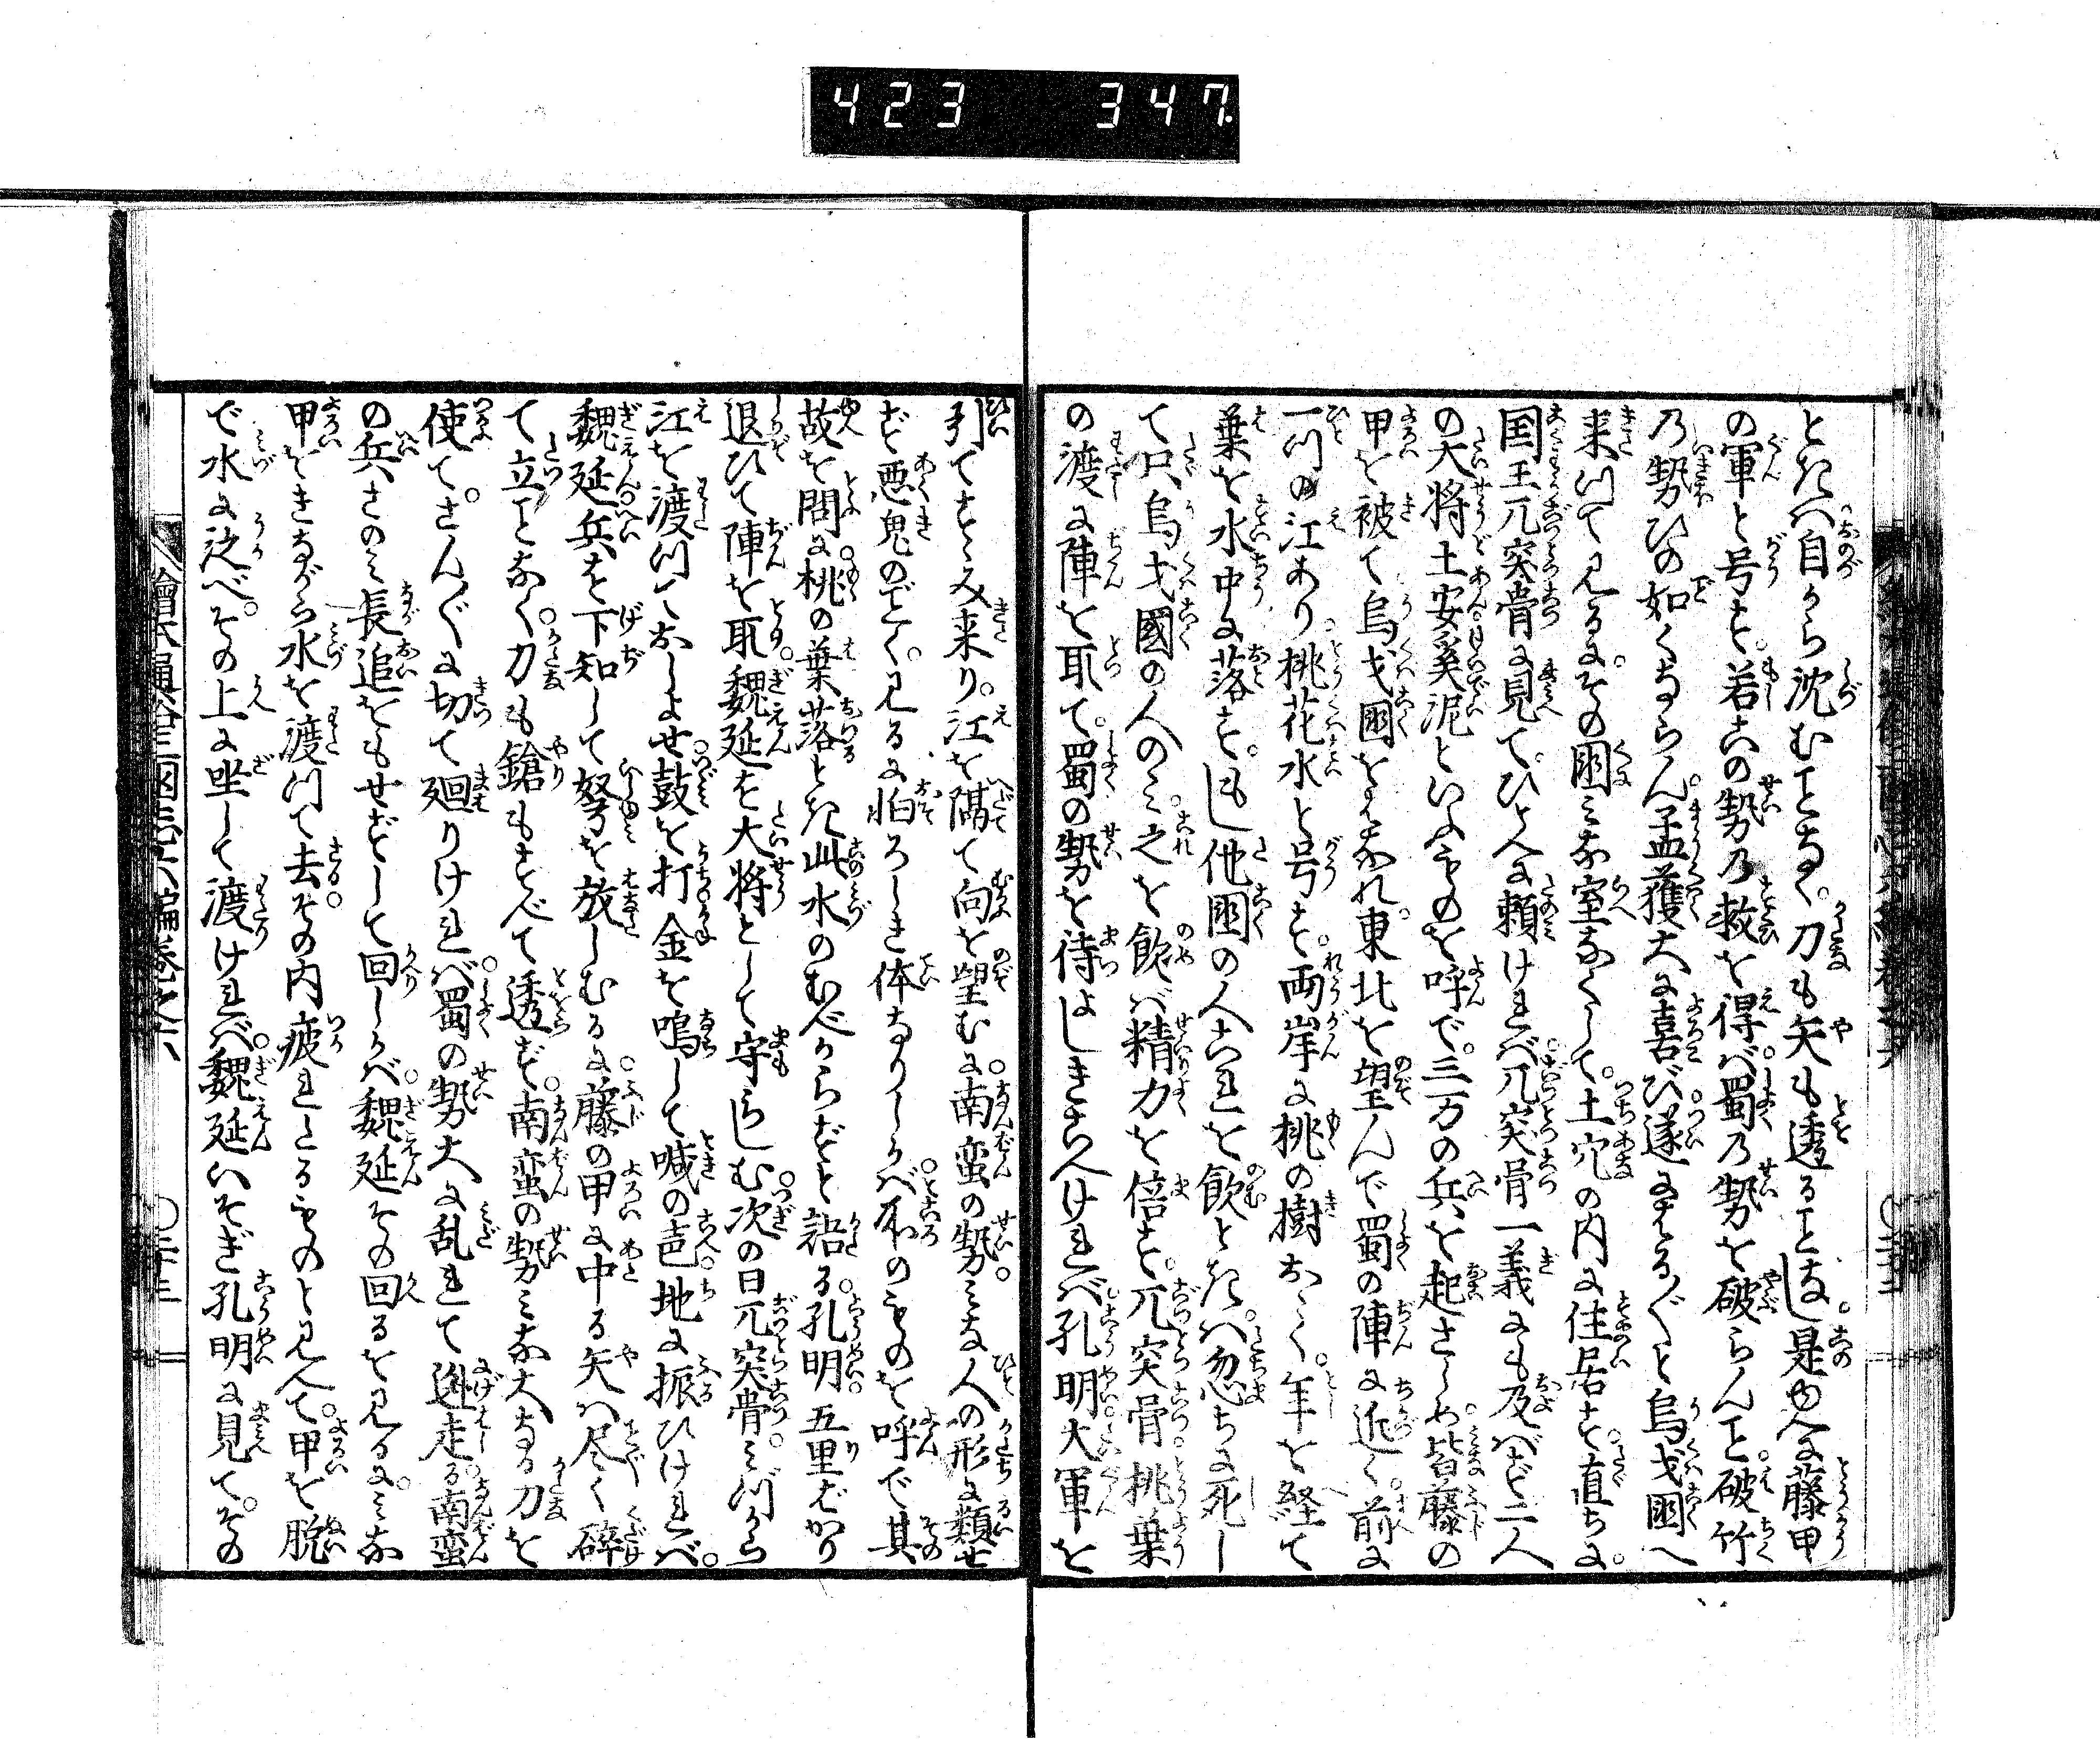 423 347
ときハ自から沈むことなく。刀も矢も透ることなし。是ゆへに藤甲
の軍と号す。若この勢の救を得バ。蜀の勢を破らんこと。破竹
の勢ひの如くならん。孟獲大に喜び。遂にはる〲と烏戈国へ
来つて見るに。その国ミな室なくして。土穴の内に住居す。直ちに。
国王兀突骨に見て。ひとへに頼けれバ。兀突骨一義にも及バず二人
の大将土安奚泥といふものを呼で。三万の兵を起さしめ。皆藤の
甲を被て烏戈国をはなれ。東北を望んで蜀の陣に近く。前に
一つの江あり。桃花水と号す。両岸に桃の樹おゝく。年を経て
葉を水中に落す。もし他国の人これを飲ときハ。忽ちに死し
て只烏戈國の人のミ。之を飲バ精力を倍す。兀突骨桃葉
の渡に陣を取て。蜀の勢を待よしきこへけれバ。孔明大軍を
引てすゝみ来り。江を隔て向を望むに。南蛮の勢。ミな人の形に類せ
ず悪鬼のごとく。見るに怕ろしき体なりしかバ。所のものを呼で其
故を問に。桃の葉落とき此水のむべからずと語る。孔明。五里ばかり
退ひて陣を取。魏延を大将として守らしむ。次の日兀突骨。ミづから
江を渡つておしよせ。鼓を打金を鳴して喊の声。地に振ひけれバ。
魏延兵を下知して弩を放しむるに。藤の甲に中る矢ハ尽く砕
て立ことなく。刀も鎗もすべて透ず。南蛮の勢ミな大なる刀を
使て。さん〲に切て廻りけれバ。蜀の勢大に乱れて逃走る。南蛮
の兵さのミ長追をもせずして回しかバ。魏延その回るを見るに。ミな
甲をきながら水を渡つて去。その内疲れたるものと見へて。甲を脱
で水に泛べ。その上に坐して渡けれバ。魏延いそぎ孔明に見て。その